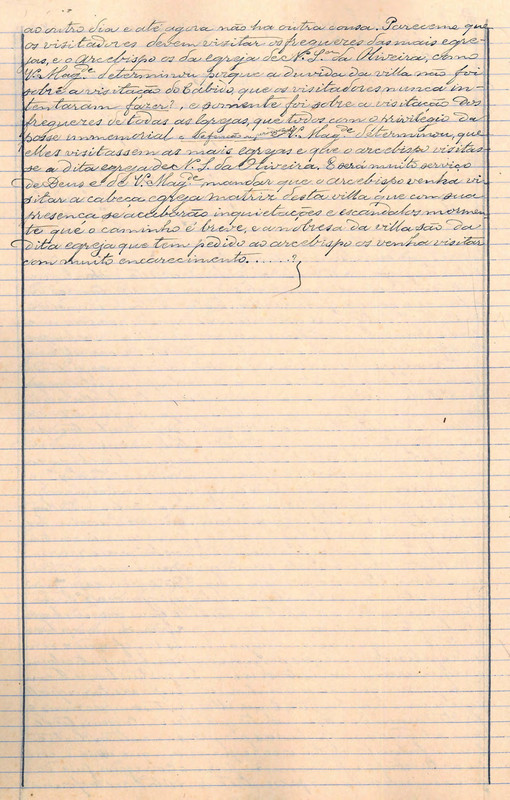 ao outro dia e até agora não ha outra cousa. Pareceme que
os visitadores devem visitar os freguezes das mais egre-
jas, e o arcebispo os da egreja de N. S.ra da Oliveira, como
V. Mag.de determinou porque a duvida da villa não foi
sobre a visitação do Cabido, que os visitadores nunca in-
tentaram fazer?, e somente foi sobre a visitação dos
freguezes de todas as Egrejas, que todos com o privilegio da
posse immemorial e V. Mag.de determinou, que
elles visitassem as mais egrejas e que o arcebispo visitas-
se a dita egreja de N. S. da Oliveira. E será muito serviço
de Deus e de V. Mag.de mandar que o arcebispo venha vi-
sitar a cabeça egreja matriz desta villa que com sua
presença se acabarão inquietações e escandalos mormen-
te que o caminho é breve, e a nobresa da villa são da
dita egreja que tem pedido ao arcebispo os venha visitar
com muito encarecimento......?